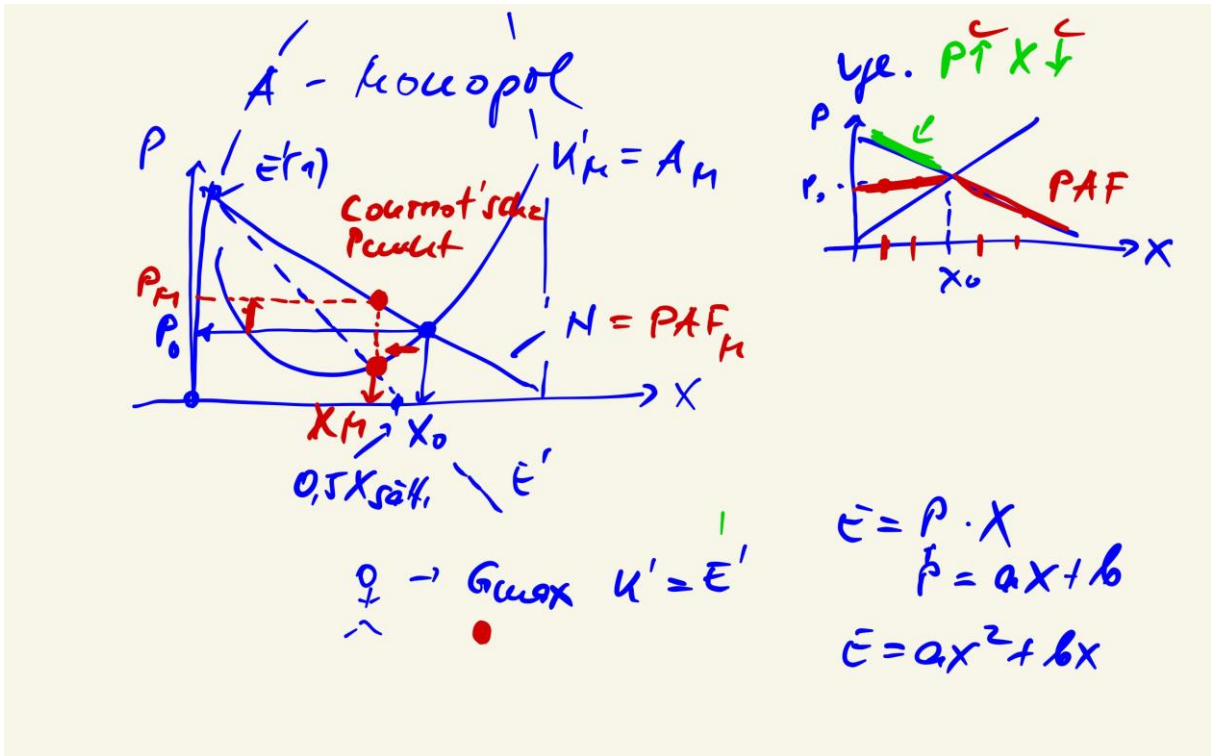 A - Monopol
P
E'(1)
K'M = AM
Cournot'sche
Punkt
PM
P0
N = PAFM
X
XM
X0
0,5 Xsätt.
E'
→ Gmax K' = E'
vgl. P↑ X↓
P
P0
PAF
X0
X
E = P · X
P = aX + b
E = aX² + bX